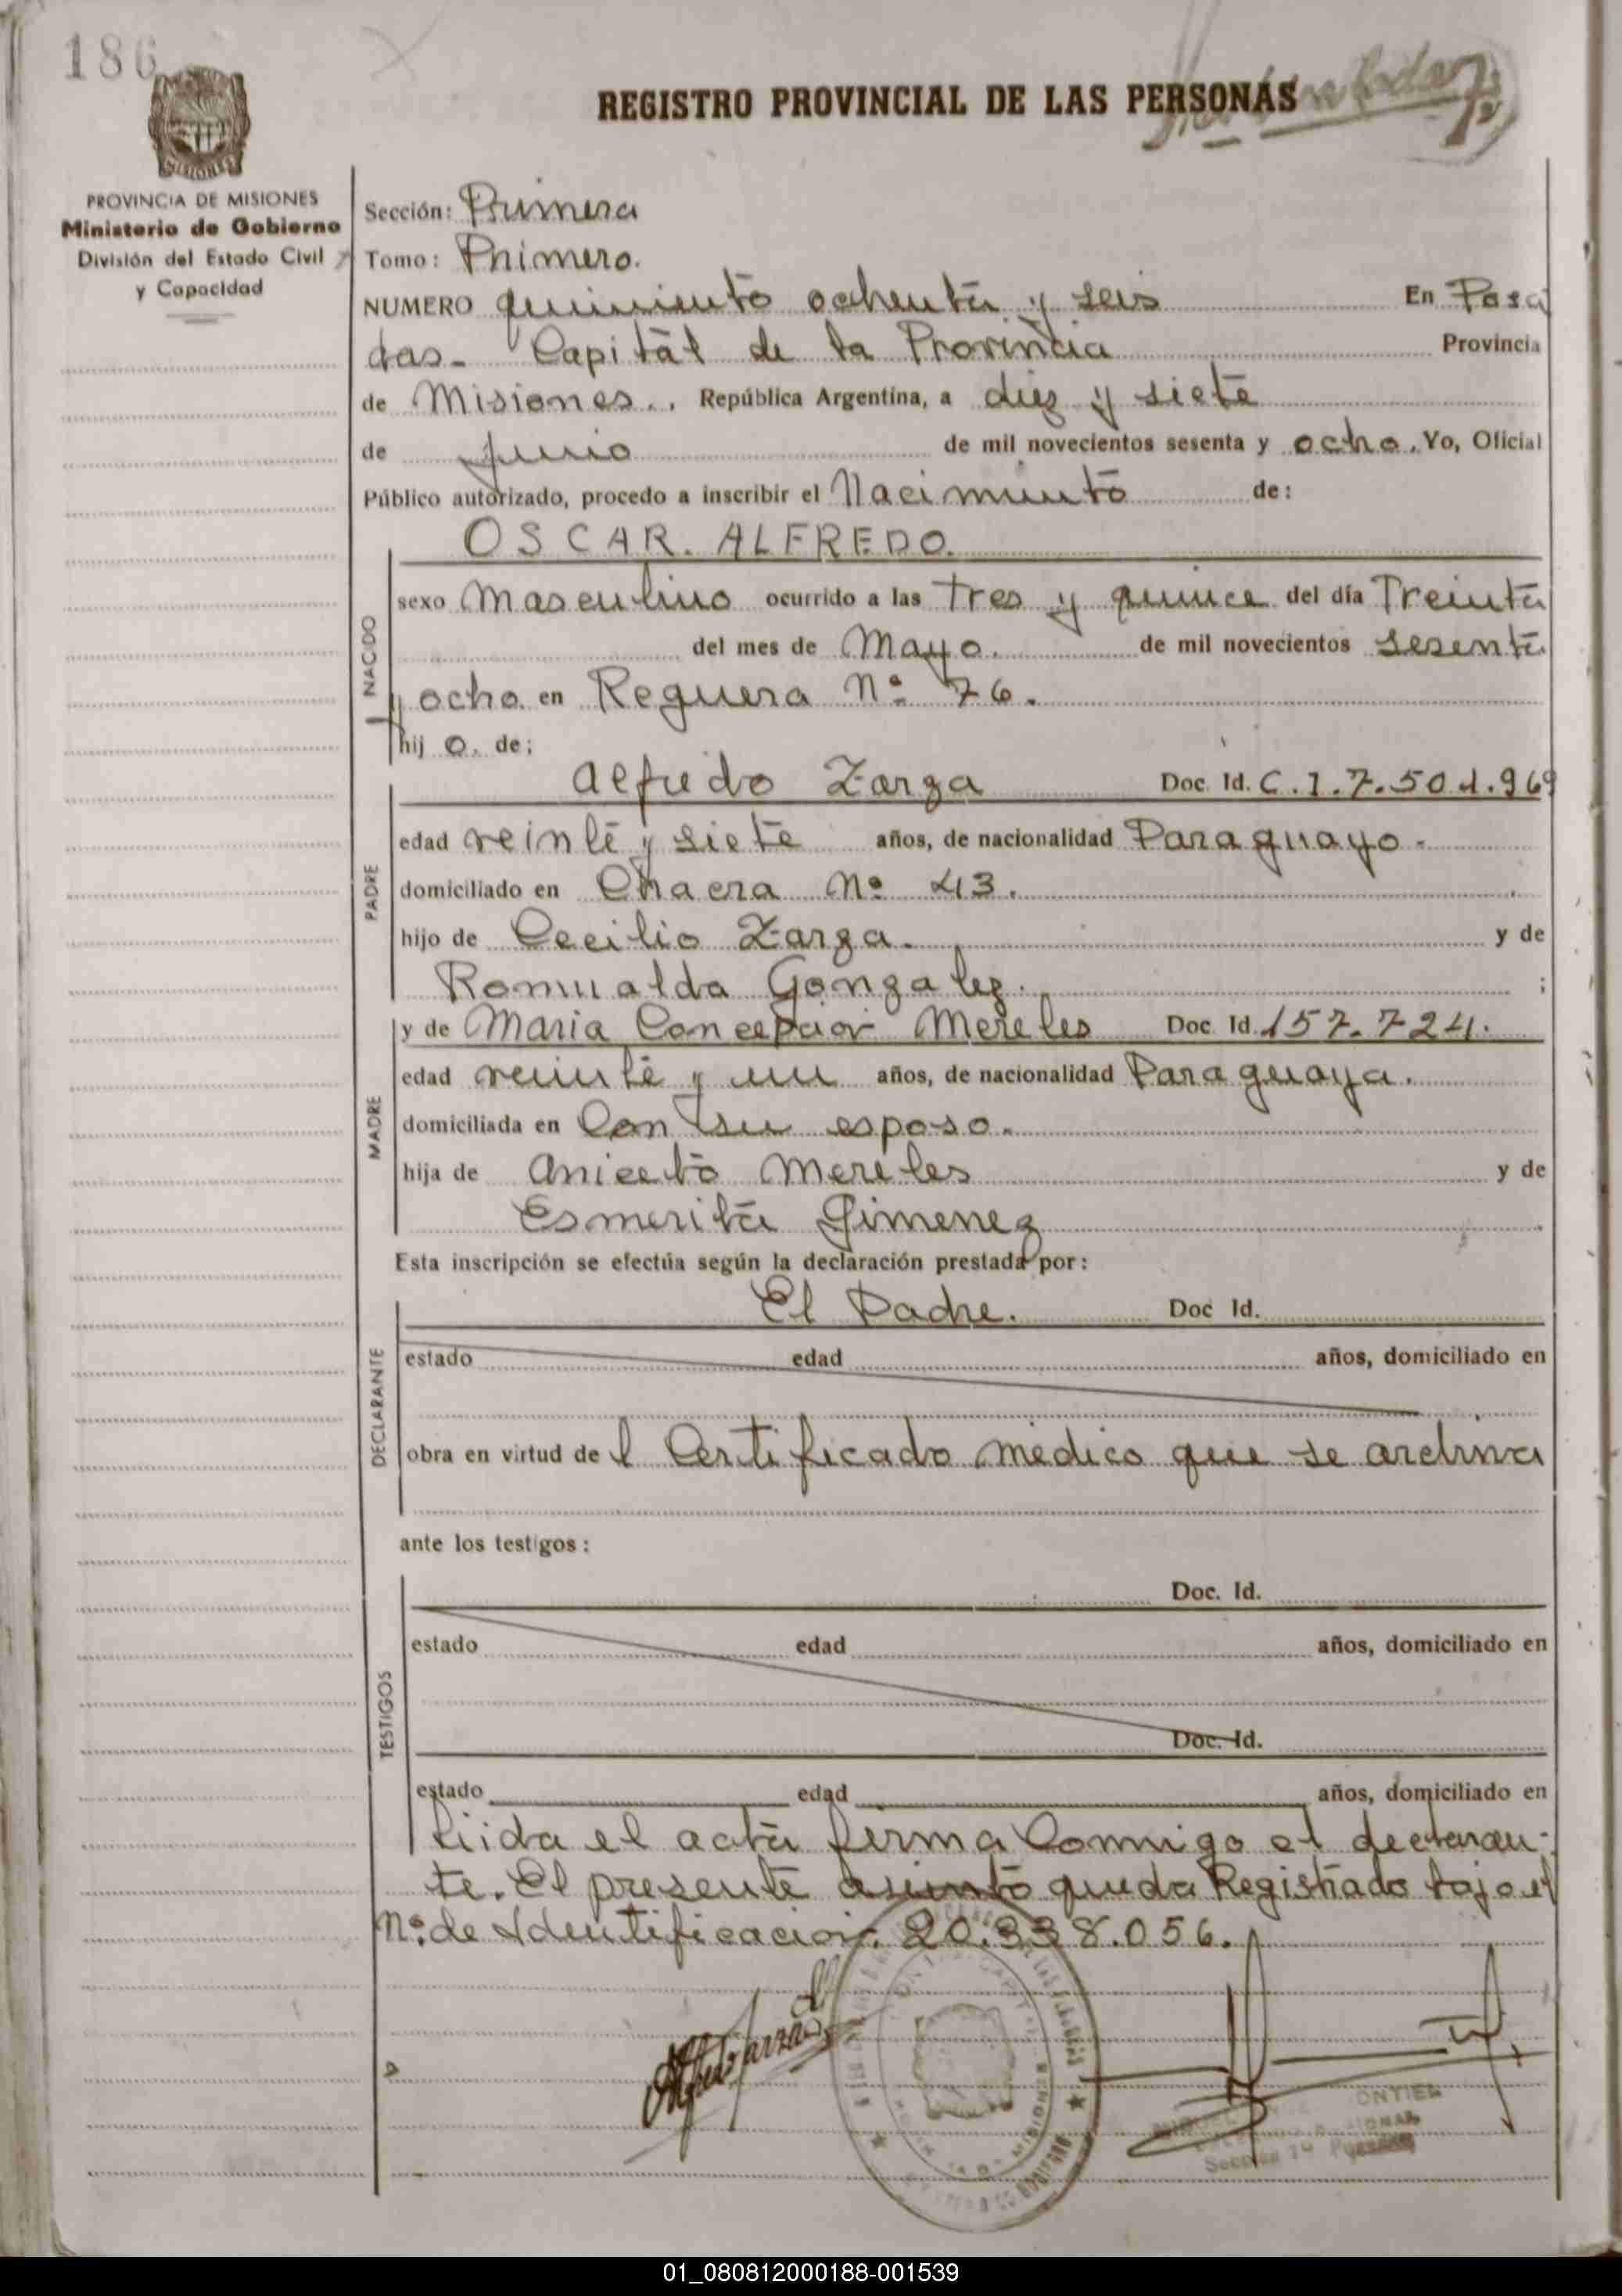 186
MISIONES
REGISTRO PROVINCIAL DE LAS PERSONAS
PROVINCIA DE MISIONES
Ministerio de Gobierno
División del Estado Civil
y Capacidad
Sección: Primera
Tomo: Primero.
NUMERO quiniento ochenta y seis En Posa
das- Capital de la Provincia Provincia
de Misiones.. República Argentina, a diez y siete
de junio de mil novecientos sesenta y ocho. Yo, Oficial
Público autorizado, procedo a inscribir el Nacimiento de:
OSCAR. ALFREDO.
NACIDO
sexo Masculino ocurrido a las Tres y quince del día Treinta
del mes de Mayo. de mil novecientos sesenta
y ocho en Reguera Nº 76.
hijo. de:
PADRE
Alfredo Zarza Doc. Id. C.I.7.501.969
edad veinte y siete años, de nacionalidad Paraguayo.
domiciliado en Chacra Nº 43.
hijo de Cecilio Zarza. y de
Romualda Gonzalez. ;
MADRE
y de Maria Concepcion Mereles Doc. Id. 157.724.
edad veinte y un años, de nacionalidad Paraguaya.
domiciliada en Con su esposo.
hija de Aniceto Mereles y de
Esmerita Gimenez
Esta inscripción se efectúa según la declaración prestada por:
DECLARANTE
El Padre. Doc Id.
estado edad años, domiciliado en
obra en virtud del Certificado medico que se archiva
ante los testigos:
TESTIGOS
Doc. Id.
estado edad años, domiciliado en
Doc. Id.
estado edad años, domiciliado en
Liida el acta firma Conmigo el declaran-
te. El presente asiento queda Registrado bajo el
Nº de Identificacion. 20.338.056.
ONTIEL
Sección 1ª Posadas
01_080812000188-001539